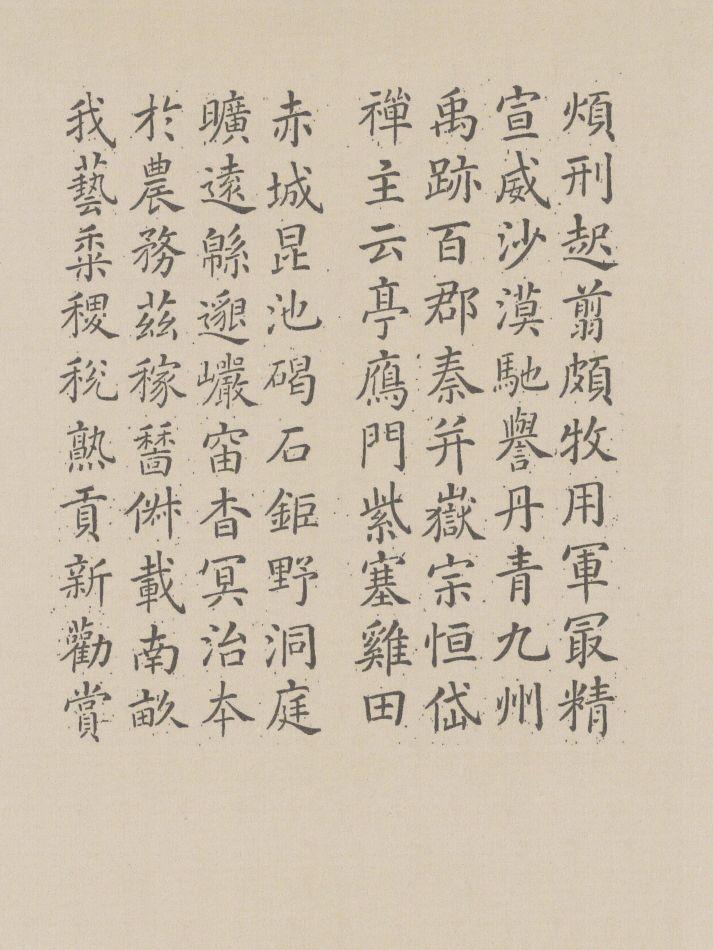 煩刑起翦頗牧用軍冣精
宣威沙漠馳譽丹青九州
禹跡百郡秦并嶽宗恒岱
禪主云亭鴈門紫塞雞田
赤城昆池碣石鉅野洞庭
曠遠緜邈巖宙杳冥治本
於農務茲稼穡俶載南畝
我藝黍稷稅熟貢新勸賞